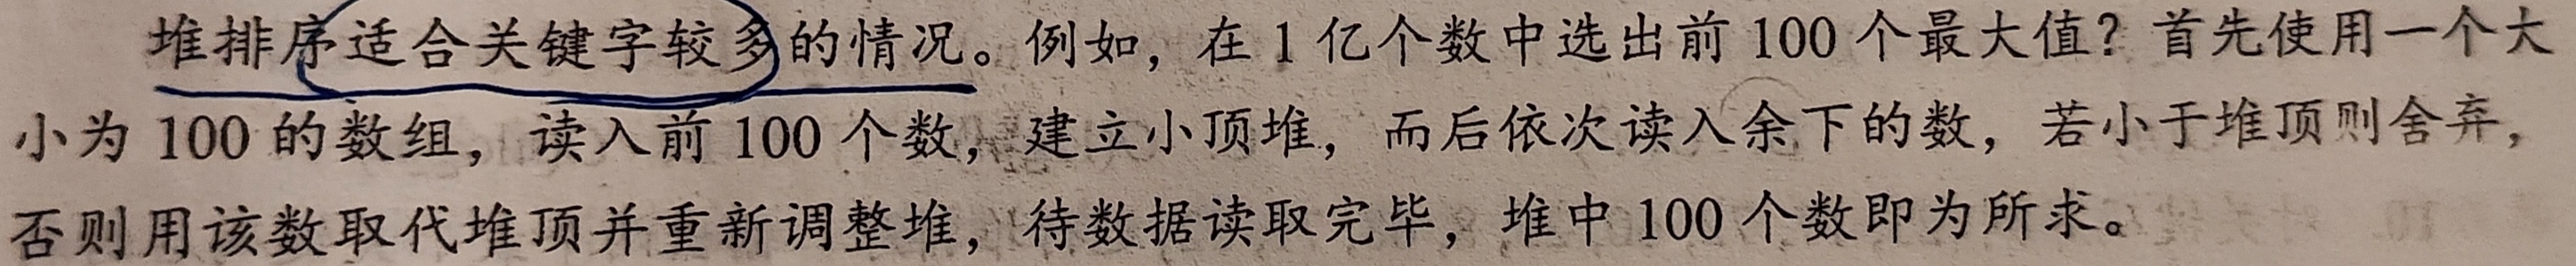 堆排序适合关键字较多的情况。例如，在 1 亿个数中选出前 100 个最大值？首先使用一个大
小为 100 的数组，读入前 100 个数，建立小顶堆，而后依次读入余下的数，若小于堆顶则舍弃，
否则用该数取代堆顶并重新调整堆，待数据读取完毕，堆中 100 个数即为所求。